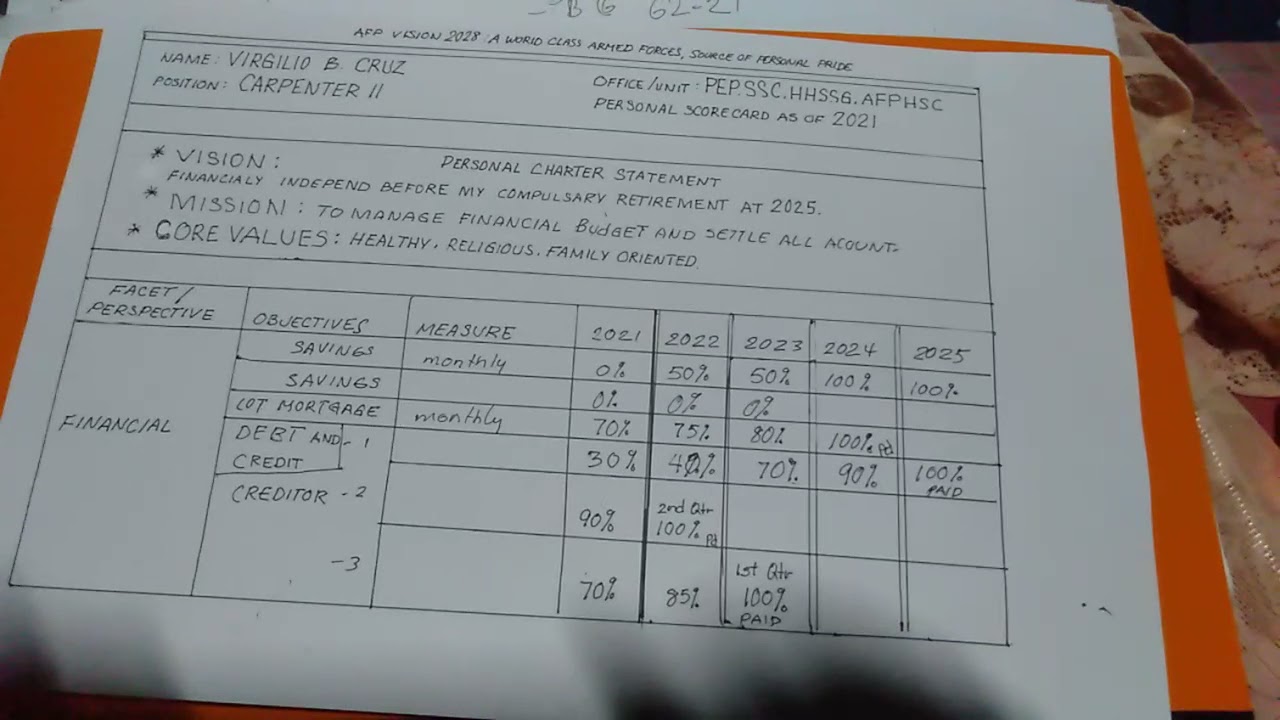 AFP VISION 2028: A WORLD CLASS ARMED FORCES, SOURCE OF PERSONAL PRIDE
NAME: VIRGILIO B. CRUZ
OFFICE/UNIT: PEP.SSC.HHSSG.AFPHSC
POSITION: CARPENTER II
PERSONAL SCORECARD AS OF 2021
PERSONAL CHARTER STATEMENT
* VISION:
FINANCIALY INDEPEND BEFORE MY COMPULSARY RETIREMENT AT 2025.
* MISSION: TO MANAGE FINANCIAL BUDGET AND SETTLE ALL ACOUNT-
* CORE VALUES: HEALTHY, RELIGIOUS. FAMILY ORIENTED.
FACET/ PERSPECTIVE OBJECTIVES MEASURE 2021 2022 2023 2024 2025
SAVINGS monthly 0% 50% 50% 100% 100%
SAVINGS 0% 0% 0%
LOT MORTGAGE monthly 70% 75% 80% 100% Pd
FINANCIAL
DEBT AND - 1
CREDIT 30% 70% 90% 100% PAID
CREDITOR - 2 90% 2nd Qtr 100% Pd
-3 70% 85% 1st Qtr 100% PAID